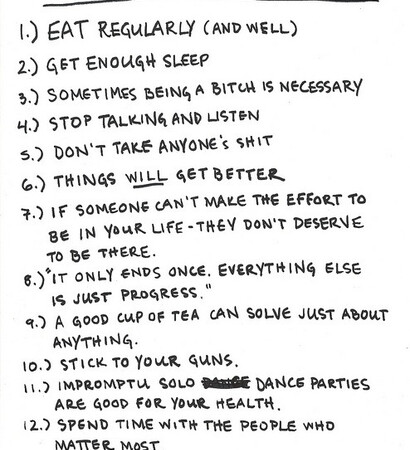 1.) EAT REGULARLY (AND WELL)
2.) GET ENOUGH SLEEP
3.) SOMETIMES BEING A BITCH IS NECESSARY
4.) STOP TALKING AND LISTEN
5.) DON'T TAKE ANYONE'S SHIT
6.) THINGS WILL GET BETTER
7.) IF SOMEONE CAN'T MAKE THE EFFORT TO
BE IN YOUR LIFE - THEY DON'T DESERVE
TO BE THERE.
8.) "IT ONLY ENDS ONCE. EVERYTHING ELSE
IS JUST PROGRESS."
9.) A GOOD CUP OF TEA CAN SOLVE JUST ABOUT
ANYTHING.
10.) STICK TO YOUR GUNS.
11.) IMPROMPTU SOLO DANCE PARTIES
ARE GOOD FOR YOUR HEALTH.
12.) SPEND TIME WITH THE PEOPLE WHO
MATTER MOST